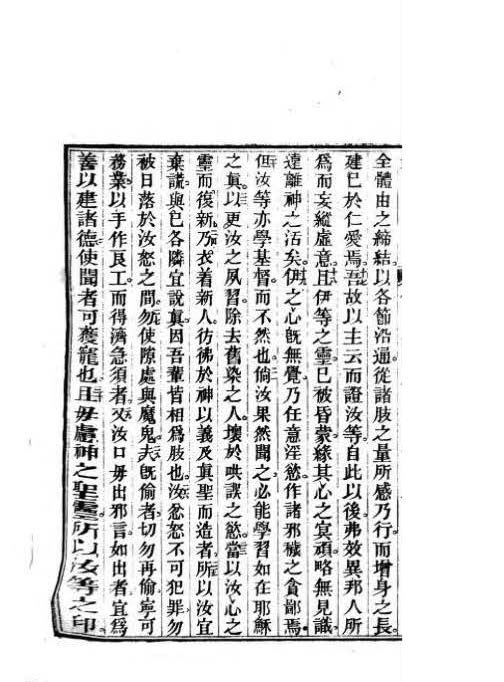 全體由之締結以各節沿通從諸肢之量所感乃行而增身之長
建已於仁愛焉吾故以主云而證汝等自此以後弗效異邦人所
為而妄縱虛意且伊等之靈已被昏蒙緣其心之冥頑略無見識
遠離神之活矣伊之心既無覺乃任意淫慾作諸邪穢之貪鄙焉
但汝等亦學基督而不然也倘汝果然聞之必能學習如在耶穌
之眞以更汝之夙習除去舊染之人壞於哄誤之慾當以汝心之
靈而復新乃衣着新人彷彿於神以義及眞聖而造者所以汝宜
棄謊與已各隣宜說眞因吾輩皆相為肢也汝忿怒不可犯罪勿
被日落於汝怒之間勿使隙處與魔鬼夫既偷者切勿再偷寧可
務業以手作良工而得濟急須者又汝口毋出邪言如出者宜為
善以建諸德使聞者可獲寵也且毋慮神之聖靈所以汝等之印